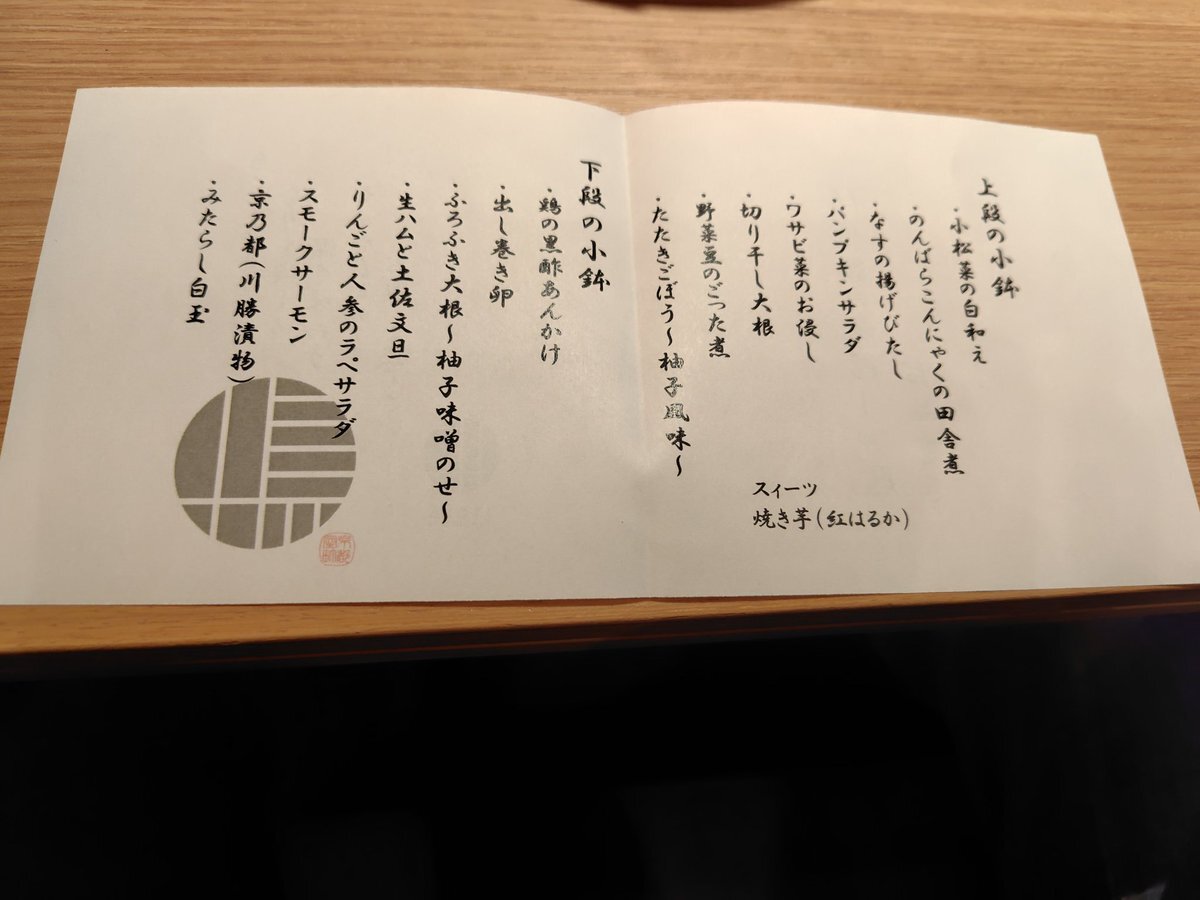 上段の小鉢
・小松菜の白和え
・のんばらこんにゃくの田舎煮
・なすの揚げびたし
・パンプキンサラダ
・ワサビ菜のお浸し
・切り干し大根
・野菜豆のごった煮
・たたきごぼう～柚子風味～
スィーツ
焼き芋(紅はるか)
下段の小鉢
・鶏の黒酢あんかけ
・出し巻き卵
・ふろふき大根～柚子味噌のせ～
・生ハムと土佐文旦
・りんごと人参のラペサラダ
・スモークサーモン
・京乃都(川勝漬物)
・みたらし白玉